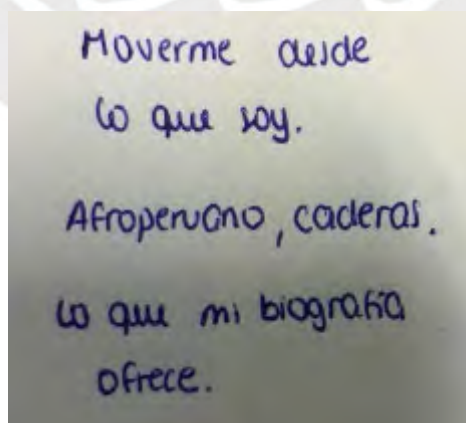 Moverme desde
lo que soy.
Afroperuano, caderas.
Lo que mi biografía
ofrece.